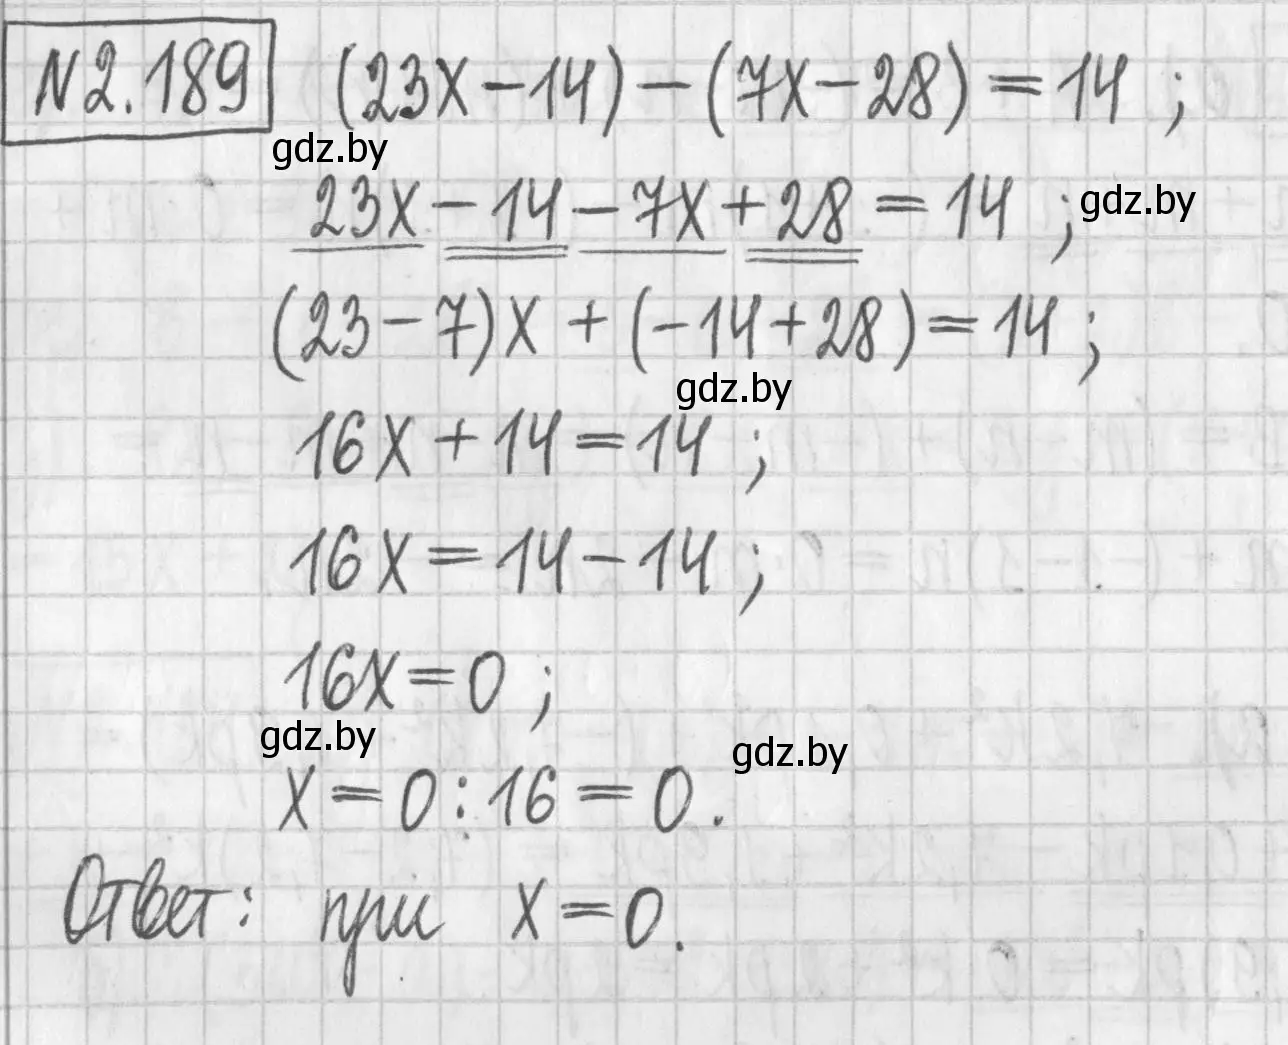 N2.189 (23x-14)-(7x-28)=14;
gdz.by
23x-14-7x+28=14; gdz.by
(23-7)x+(-14+28)=14;
gdz.by
16x+14=14;
16x=14-14;
16x=0;
gdz.by gdz.by
x=0:16=0.
Ответ: при x=0.